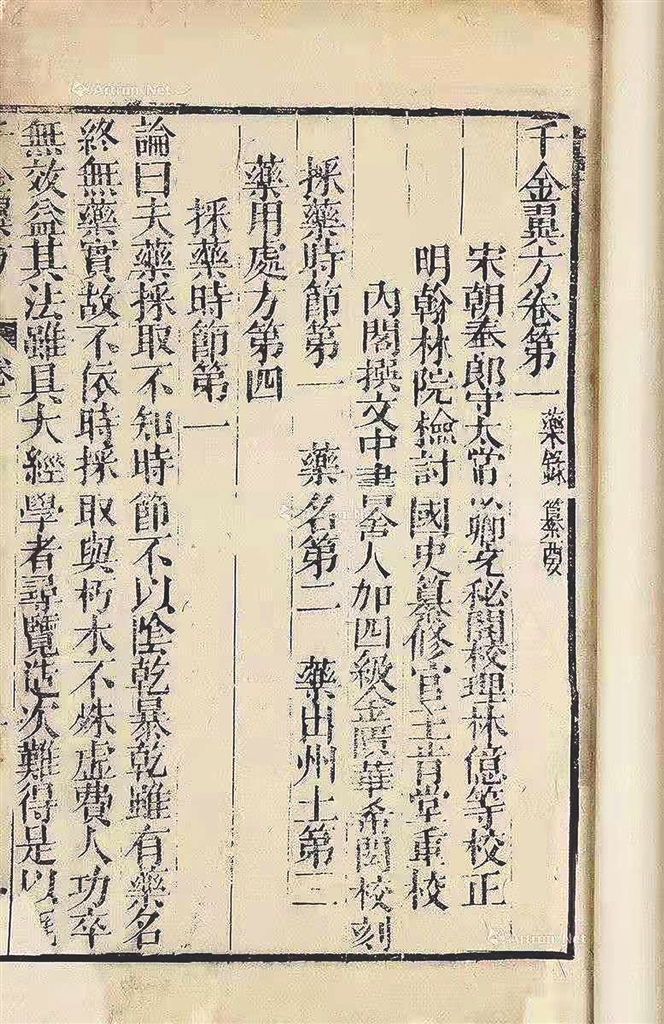 千金翼方卷第一 藥錄 纂要
宋朝奉郎守太常少卿充秘閣校理林億等校正
明翰林院檢討國史纂修官王肯堂重校
內閣撰文中書舍人加四級金匱華希閎校刻
採藥時節第一 藥名第二 藥出州土第三
藥用處方第四
採藥時節第一
論曰夫藥採取不知時節不以陰乾暴乾雖有藥名
終無藥實故不依時採取與朽木不殊虛費人功卒
無效益其法雖具大經學者尋覽造次難得是以
Artron.Net